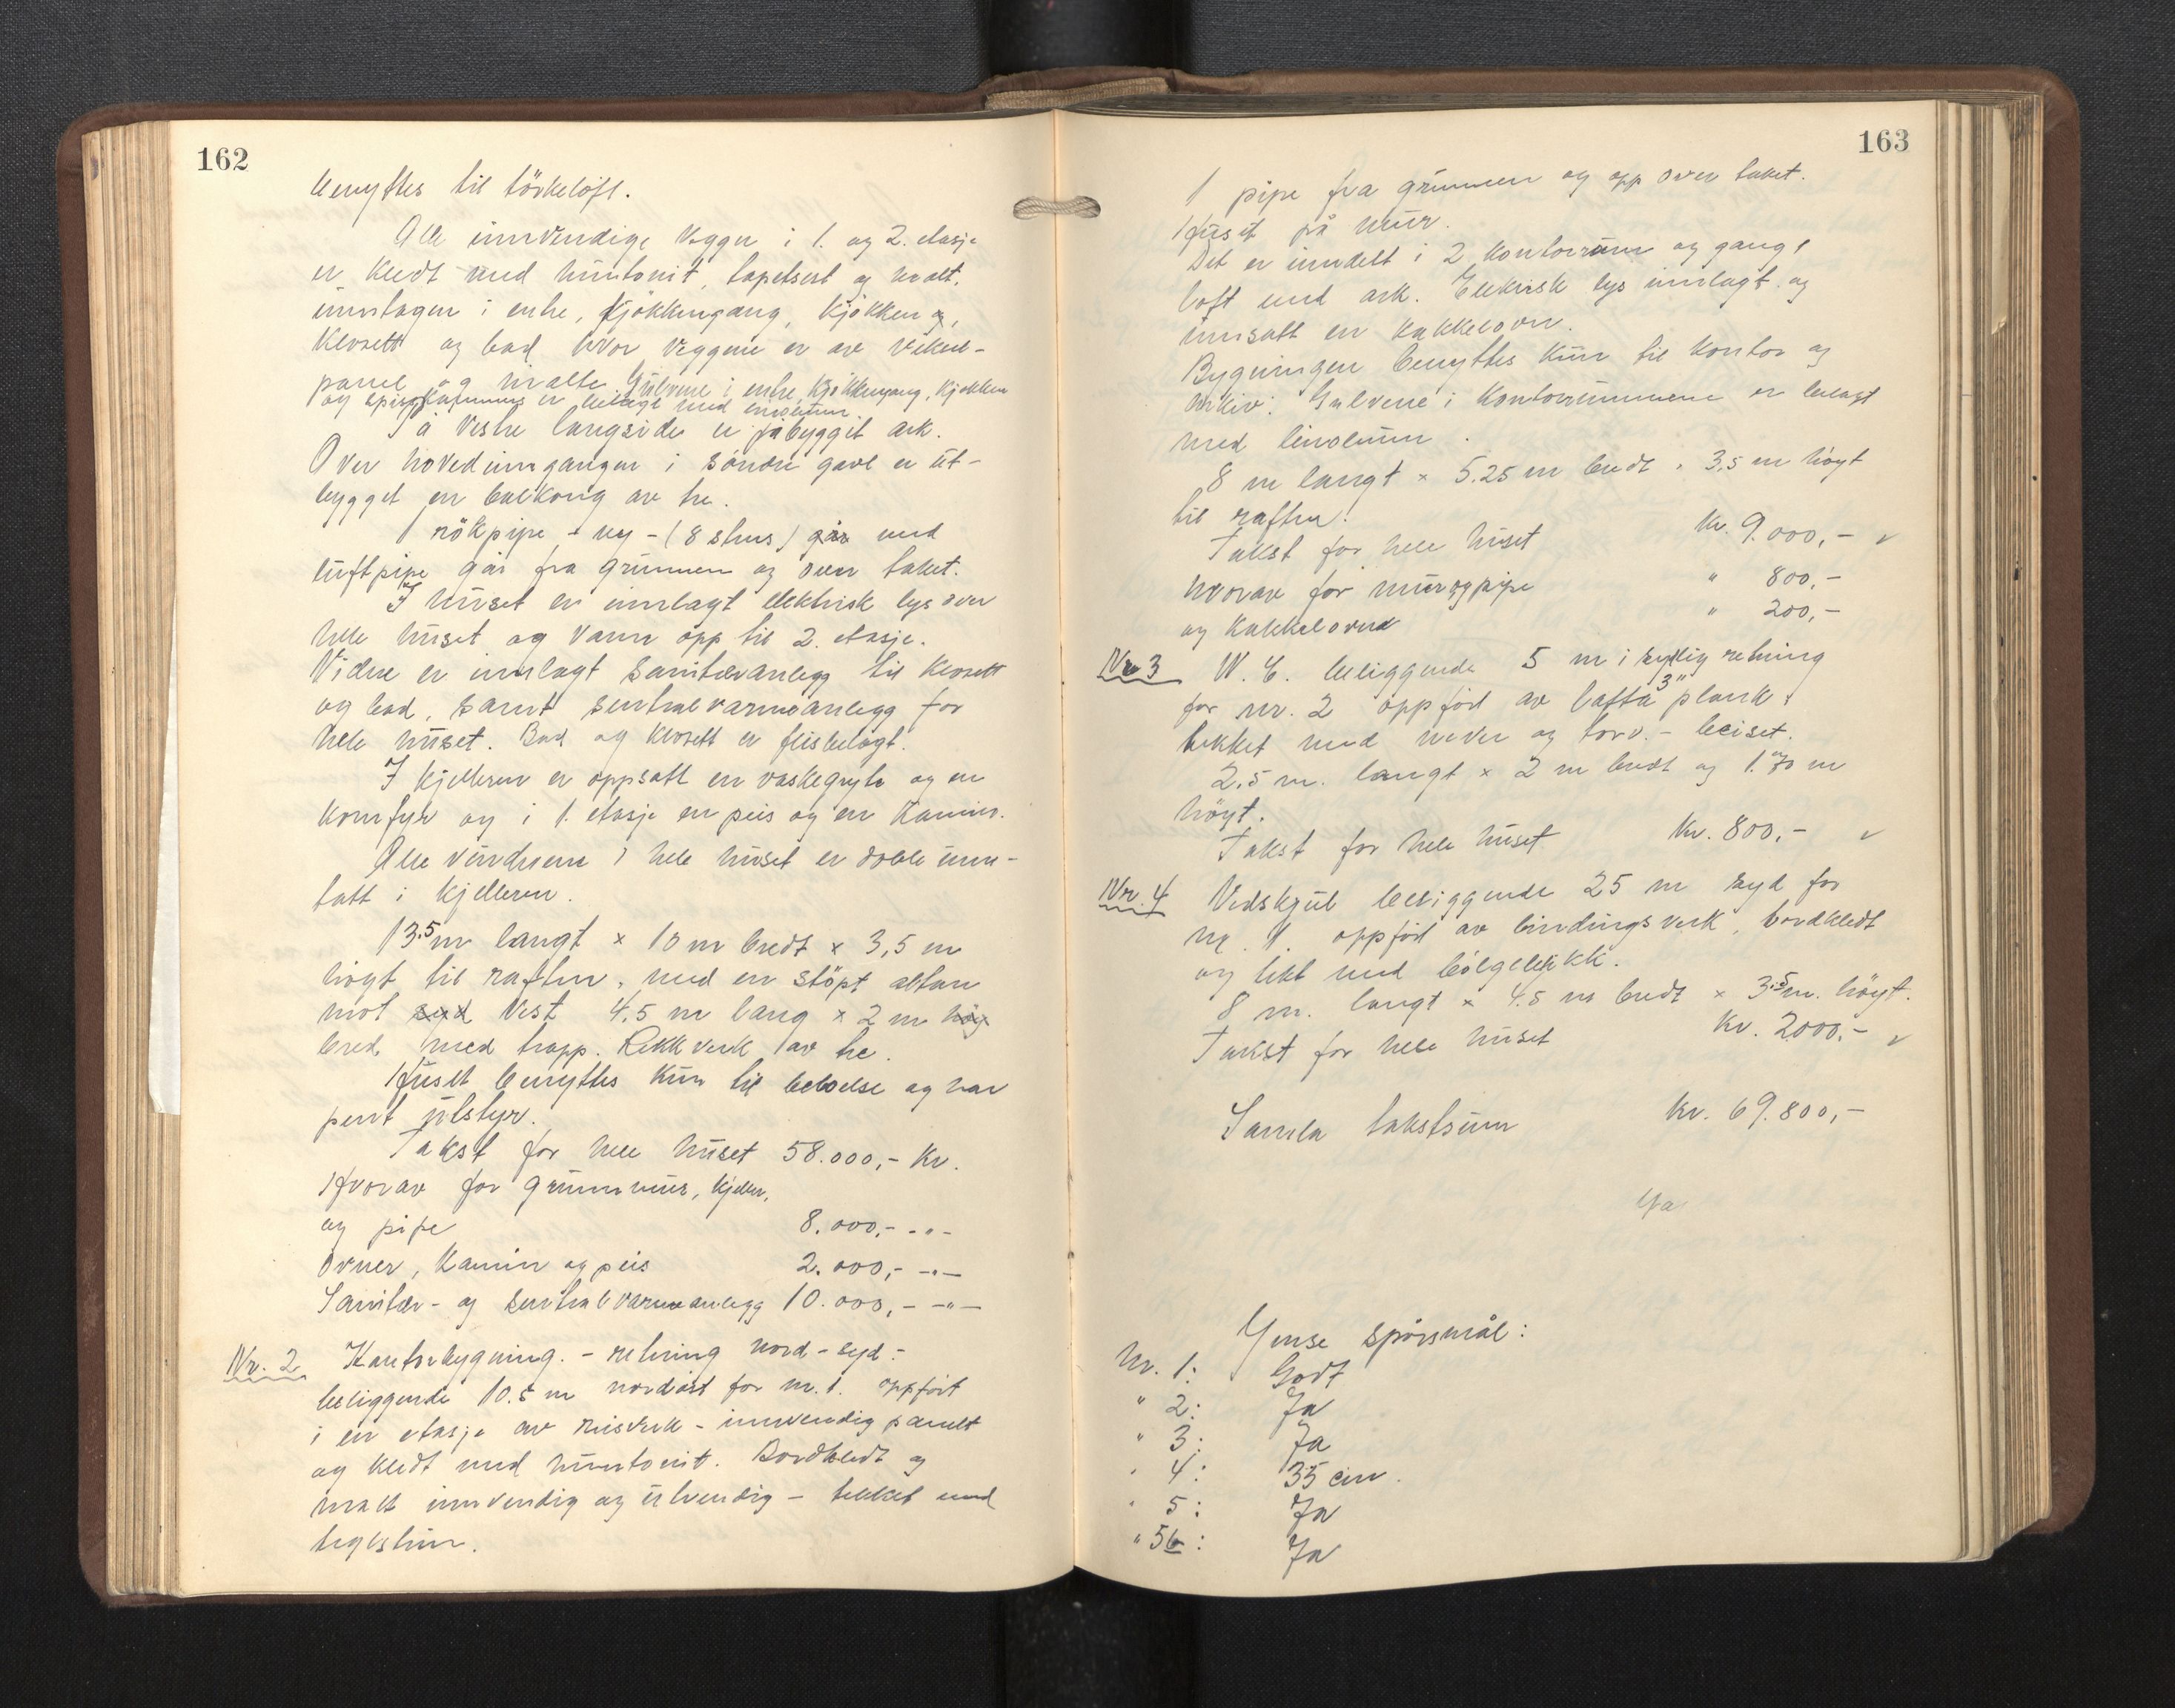 162
benyttes til törkeloft.
Alle innvendige vegger i 1. og 2. etasje
er kledt med huntonit, tapetsert og malt,
unntagen i entre, kjökkengang, kjökken og,
klosett og bad hvor veggene er av
panel og malte. Gulvene i entre, kjökkengang, kjökken
og spiskammers er belagt med linoleum.
På Vestre langside er påbygget ark.
Over hovedinngangen i söndre gavl er ut-
bygget en balkong av tre.
1 rökpipe - ny - (8 stens) går med
luftpipe går fra grunnen og over taket.
I huset er innlagt elektrisk lys over
hele huset og vann opp til 2. etasje.
Vidre er innlagt sanitæranlegg til klosett
og bad, samt sentralvarmeanlegg for
hele huset. Bad og klosett er flisbelagt.
I kjelleren er oppsatt en vaskegryte og en
komfyr og i 1. etasje en peis og en Kamin.
Alle vinduene i hele huset er doble unn-
tatt i kjelleren.
13.5 m langt × 10 m bredt × 3,5 m
högt til raften, med en stöpt altan
mot syd Vest 4,5 m lang × 2 m høg
bred med trapp. Rekkverk av tre.
Huset benyttes kun til beboelse og har
pent utstyr.
Takst for hele huset 58.000,- Kr.
Hvorav for grunnmur, kjeller,
og pipe 8.000,- -"-
Ovner, Kamin og peis 2.000,- -"-
Sanitær- og sentralvarmeanlegg 10.000,- -"-
Nr. 2 Kontorbygning. - retning nord - syd -
beliggende 10.5 m nordöst for nr. 1. oppfört
i en etasje av reisverk - innvendig panelt
og kledt med huntonit. Bordkledt og
malt innvendig og utvendig - tekket med
teglstein.
163
1 pipe fra grunnen og opp over taket.
Huset på mur.
Det er inndelt i 2 kontorrum og gang 1
loft med ark. Elektrisk lys innlagt og
innsatt en kakkelovn.
Bygningen benyttes kun til kontor og
arkiv. Gulvene i kontorrummene er belagt
med linoleum.
8 m langt × 5.25 m bredt × 3,5 m høyt
til raften.
Takst for hele huset Kr. 9.000,- ✓
hvorav for mur og pipe " 800,-
og kakkelovnen " 200,-
Nr 3 W.C. beliggende 5 m i sydlig retning
for nr. 2 oppförd av lafta 3" plank,
tekket med never og torv. - beiset.
2,5 m. langt × 2 m bredt og 1.70 m
höyt.
Takst for hele huset Kr. 800,- ✓
Nr. 4 Vedskjul beliggende 25 m syd for
nr. 1. oppförd av bindingsverk, bordkledt
og tekt med bölgeblikk.
8 m. langt × 4.5 m bredt × 3.5 m. höyt.
Takst for hele huset Kr. 2000,- ✓
Samla takstsum Kr. 69.800,-
Ja
Ymse spörsmål:
Nr. 1: Godt
" 2: Ja
" 3: Ja
" 4: 35 cm.
" 5: Ja
" 5b: Ja